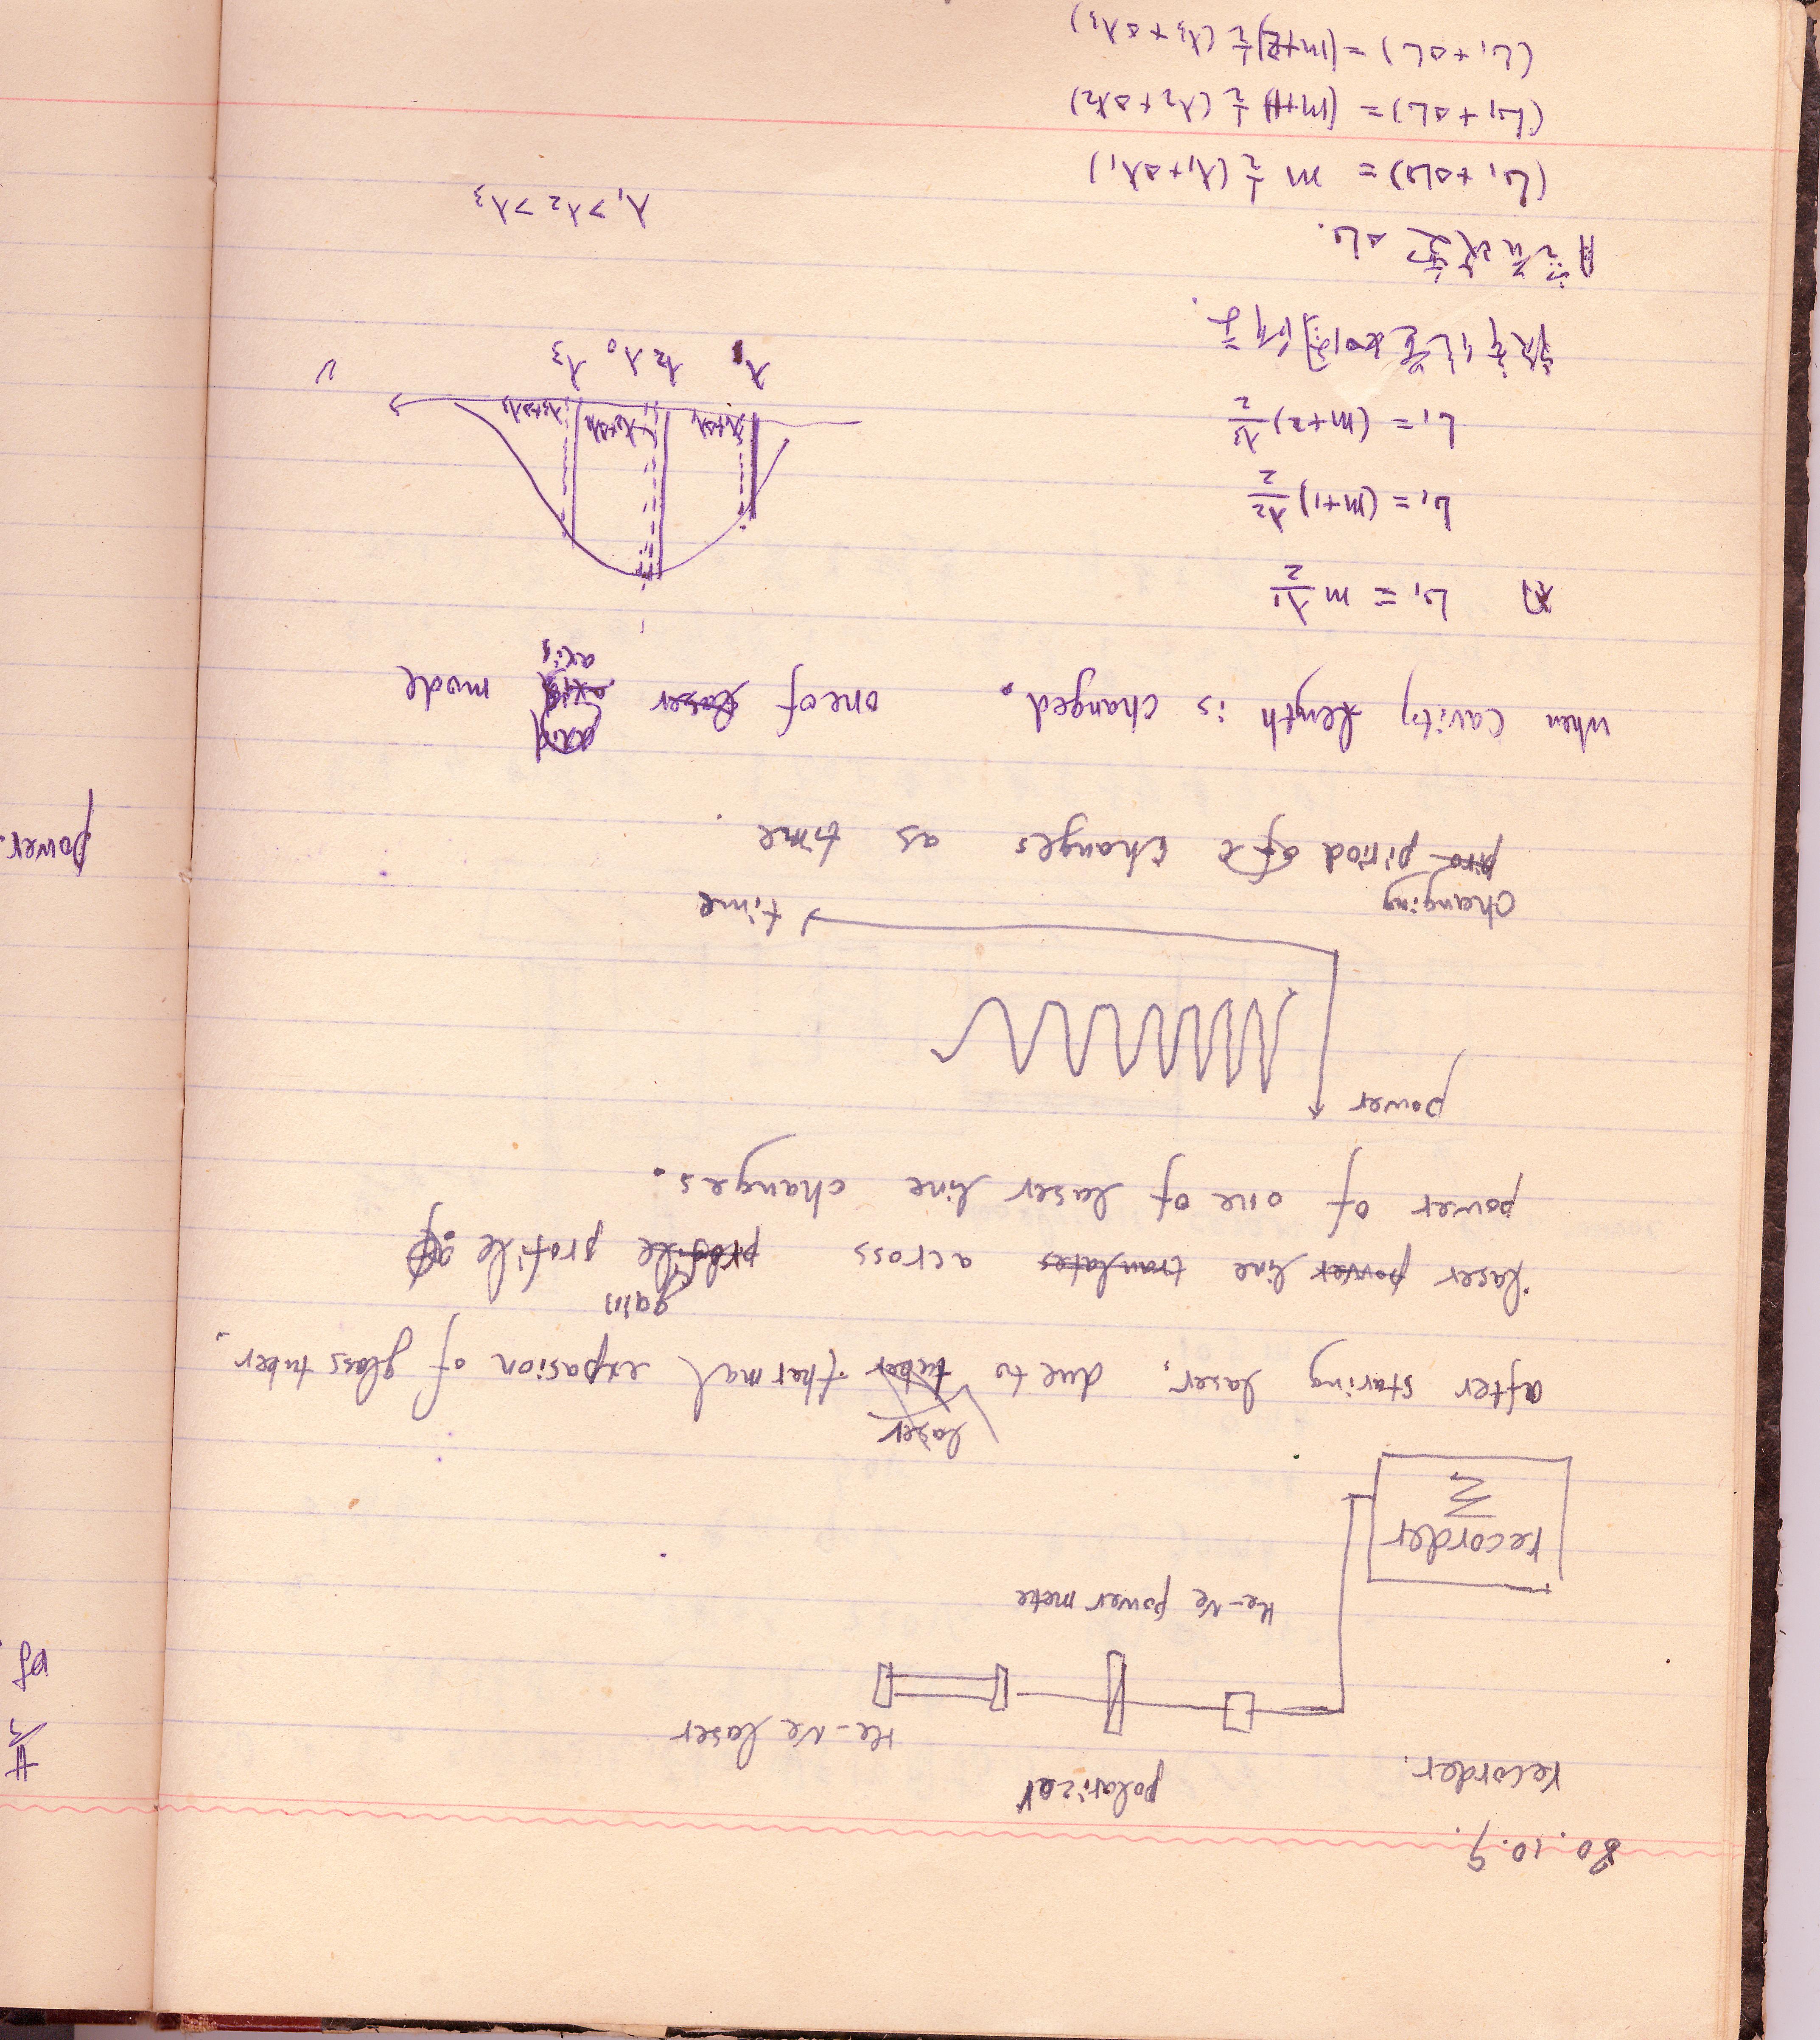 80.10.9.
recorder.
polarizer
He-Ne laser
He-Ne power mete
recorder
laser
after staring laser, due to tuber thermal expasion of glass tuber.
gain
laser power line translates across profile profile of
power of one of laser line changes.
power
time
changing
pro piriod of changes as time.
when cavity length is changed. one of laser axis mode
axis
L₁ = m λ₁/2
L₁ = (m+1) λ₂/2
L₁ = (m+2) λ₃/2
λ₁ λ₂ λ₀ λ₃
ν
λ₁+Δλ₁ λ₂+Δλ₂ λ₃+Δλ₃
λ₁ > λ₂ > λ₃
ΔL.
(L₁ + ΔL) = m ½ (λ₁+Δλ₁)
(L₁ + ΔL) = (m+1) ½ (λ₂+Δλ₂)
(L₁ + ΔL) = (m+2) ½ (λ₃+Δλ₃)
power.
of